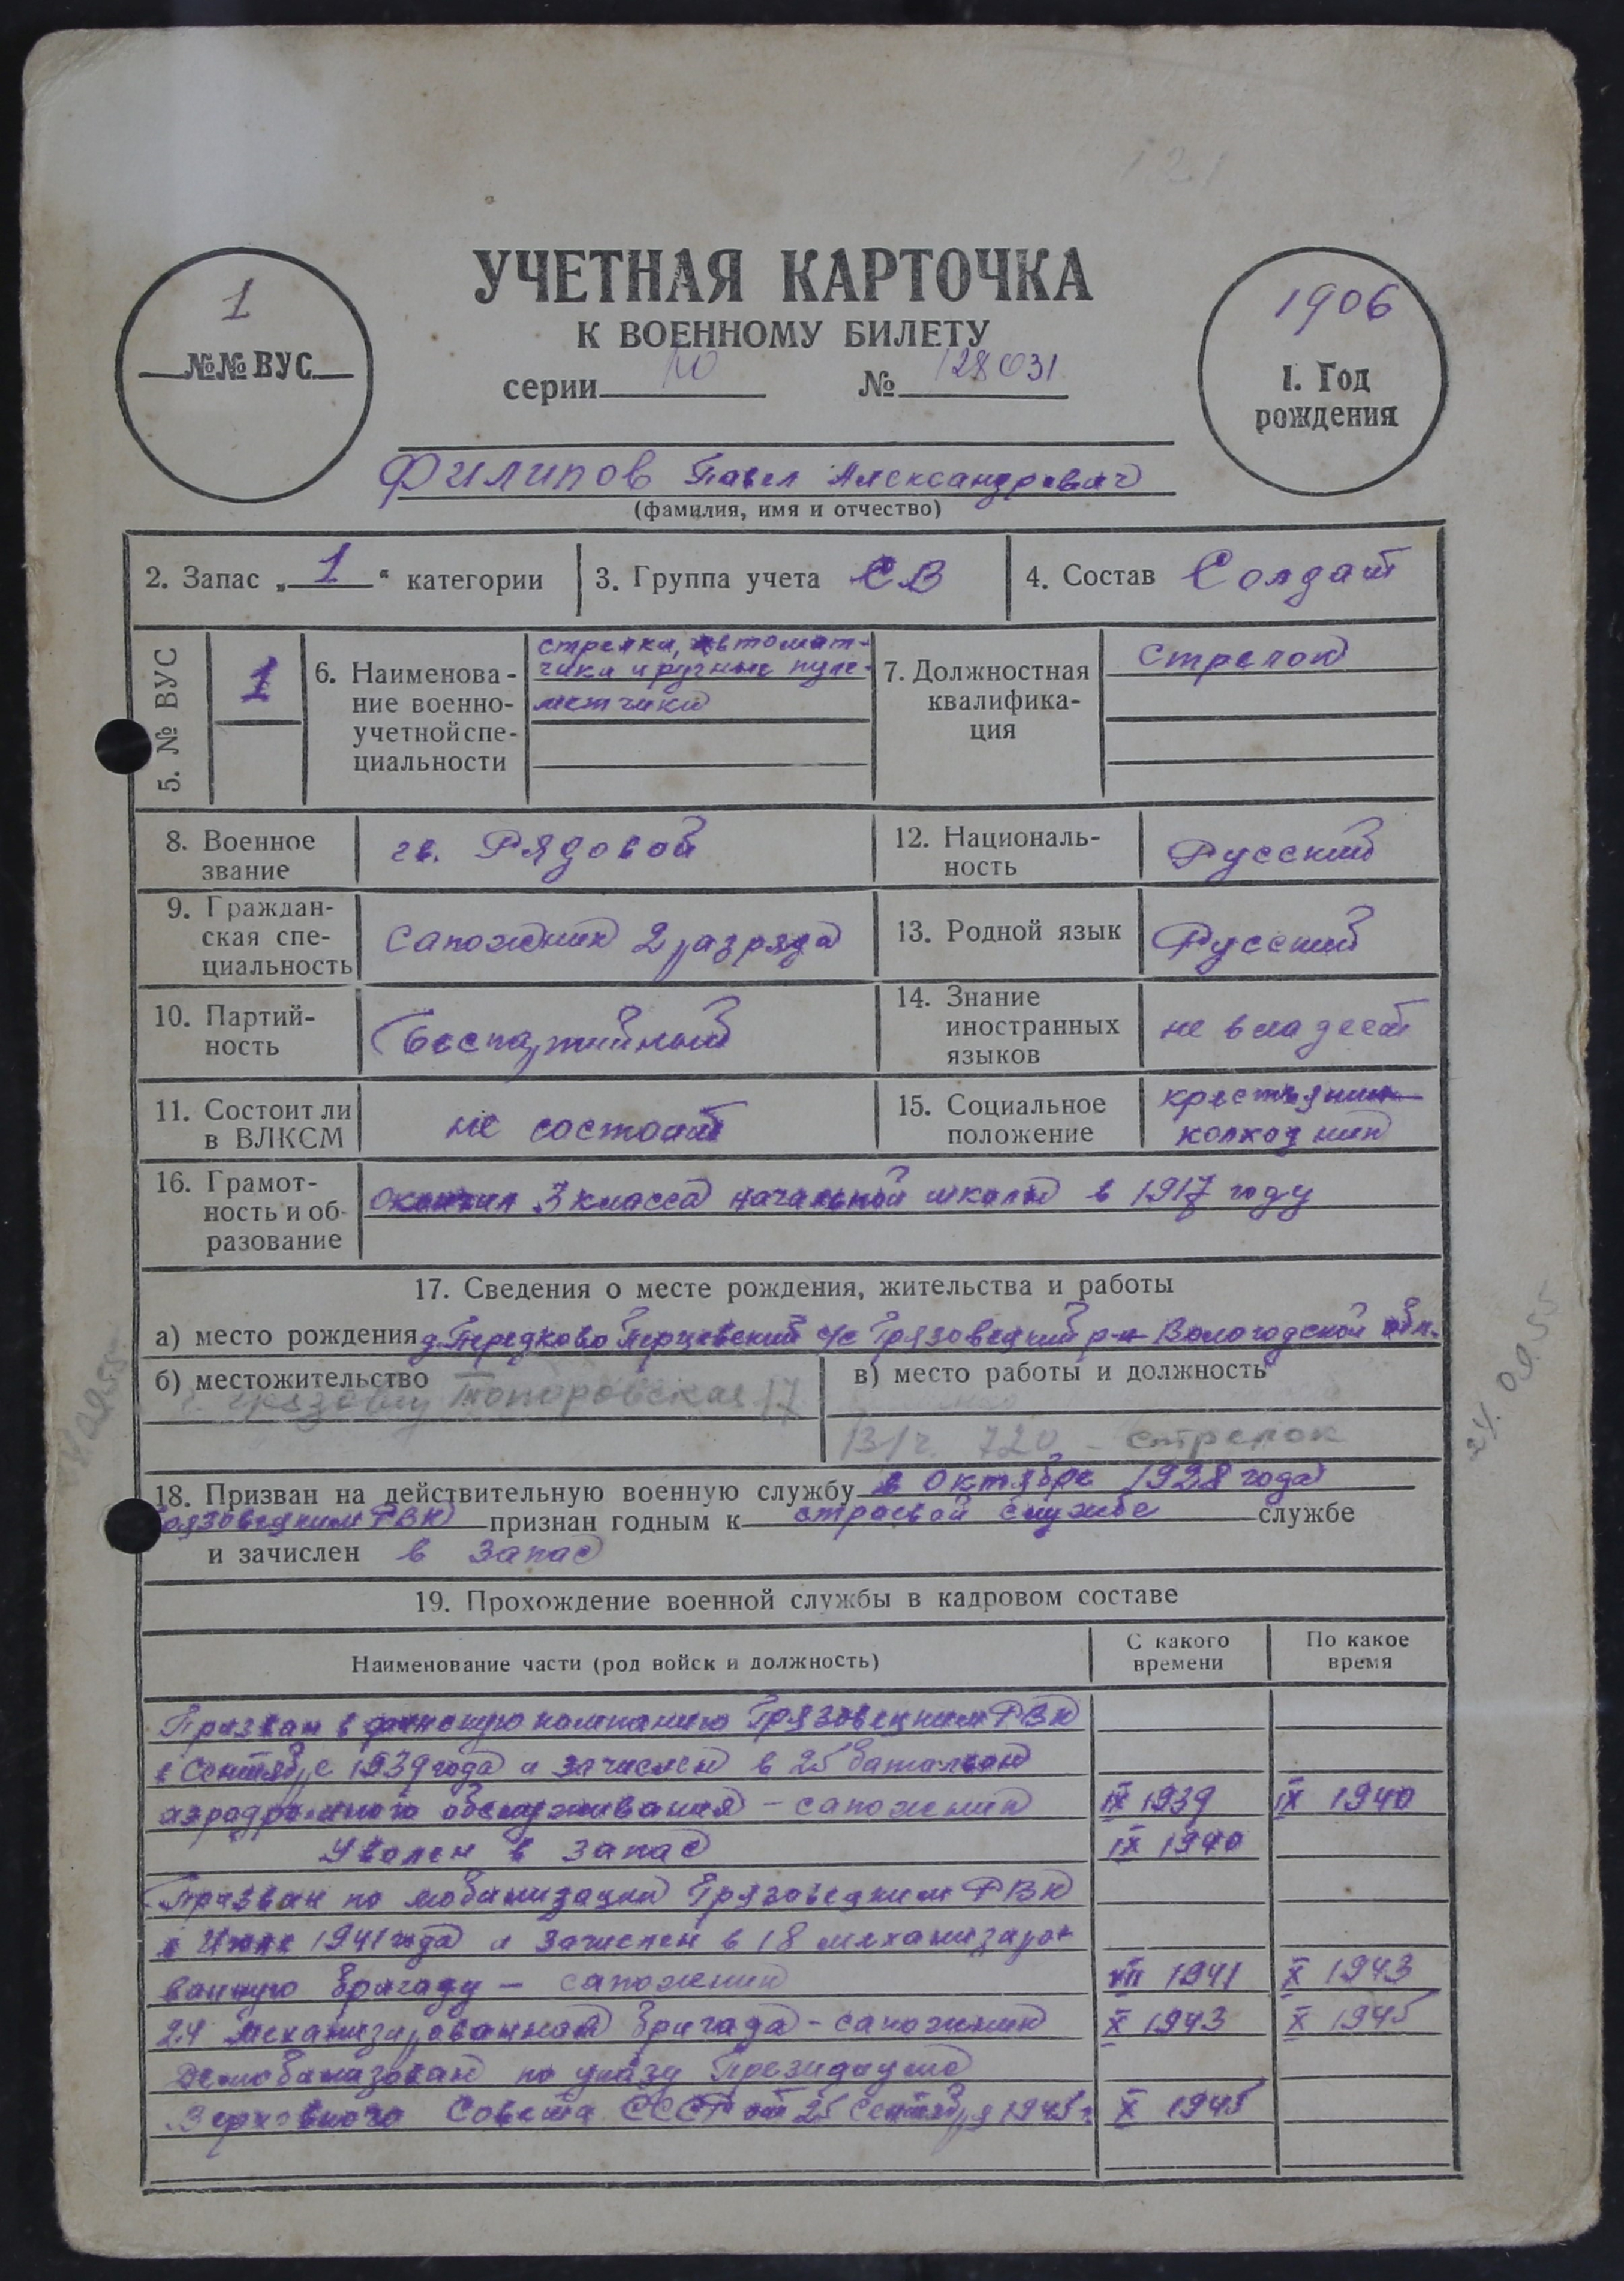 УЧЕТНАЯ КАРТОЧКА
К ВОЕННОМУ БИЛЕТУ
1
№№ ВУС
1906
1. Год
рождения
серии № 128031
Филипов Павел Александрович
(фамилия, имя и отчество)
2. Запас „1“ категории
3. Группа учета СВ
4. Состав Солдат
5. № ВУС
1
6. Наименова-
ние военно-
учетной спе-
циальности
стрелки, автомат-
чики и ручные пуле-
метчики
7. Должностная
квалифика-
ция
Стрелок
8. Военное
звание
гв. Рядовой
12. Националь-
ность
Русский
9. Граждан-
ская спе-
циальность
Сапожник 2 разряда
13. Родной язык
Русский
10. Партий-
ность
Беспартийный
14. Знание
иностранных
языков
не владеет
11. Состоит ли
в ВЛКСМ
не состоит
15. Социальное
положение
крестьянин
колхозник
16. Грамот-
ность и об-
разование
окончил 3 класса начальной школы в 1917 году
17. Сведения о месте рождения, жительства и работы
а) место рождения д. Передково Перцевский с/с Грязовецкий р-н Вологодской обл.
б) местожительство
г. Грязовец Топоровская 17
в) место работы и должность
В/ч. 720 - стрелок
24.09.55
18. Призван на действительную военную службу в октябре 1928 года
Грязовецким РВК признан годным к строевой службе службе
и зачислен в запас
19. Прохождение военной службы в кадровом составе
Наименование части (род войск и должность)
С какого
времени
По какое
время
Призван в финскую компанию Грязовецким РВК
в Сентябре 1939 года и зачислен в 25 батальон
аэродромного обслуживания - сапожник IX 1939 IX 1940
Уволен в запас IX 1940
Призван по мобилизации Грязовецким РВК
в Июле 1941 года и зачислен в 18 механизиро-
ванную бригаду - сапожник VII 1941 X 1943
24 механизированная бригада - сапожник X 1943 X 1945
Демобилизован по указу Президиума
Верховного Совета СССР от 25 Сентября 1945 г. X 1945